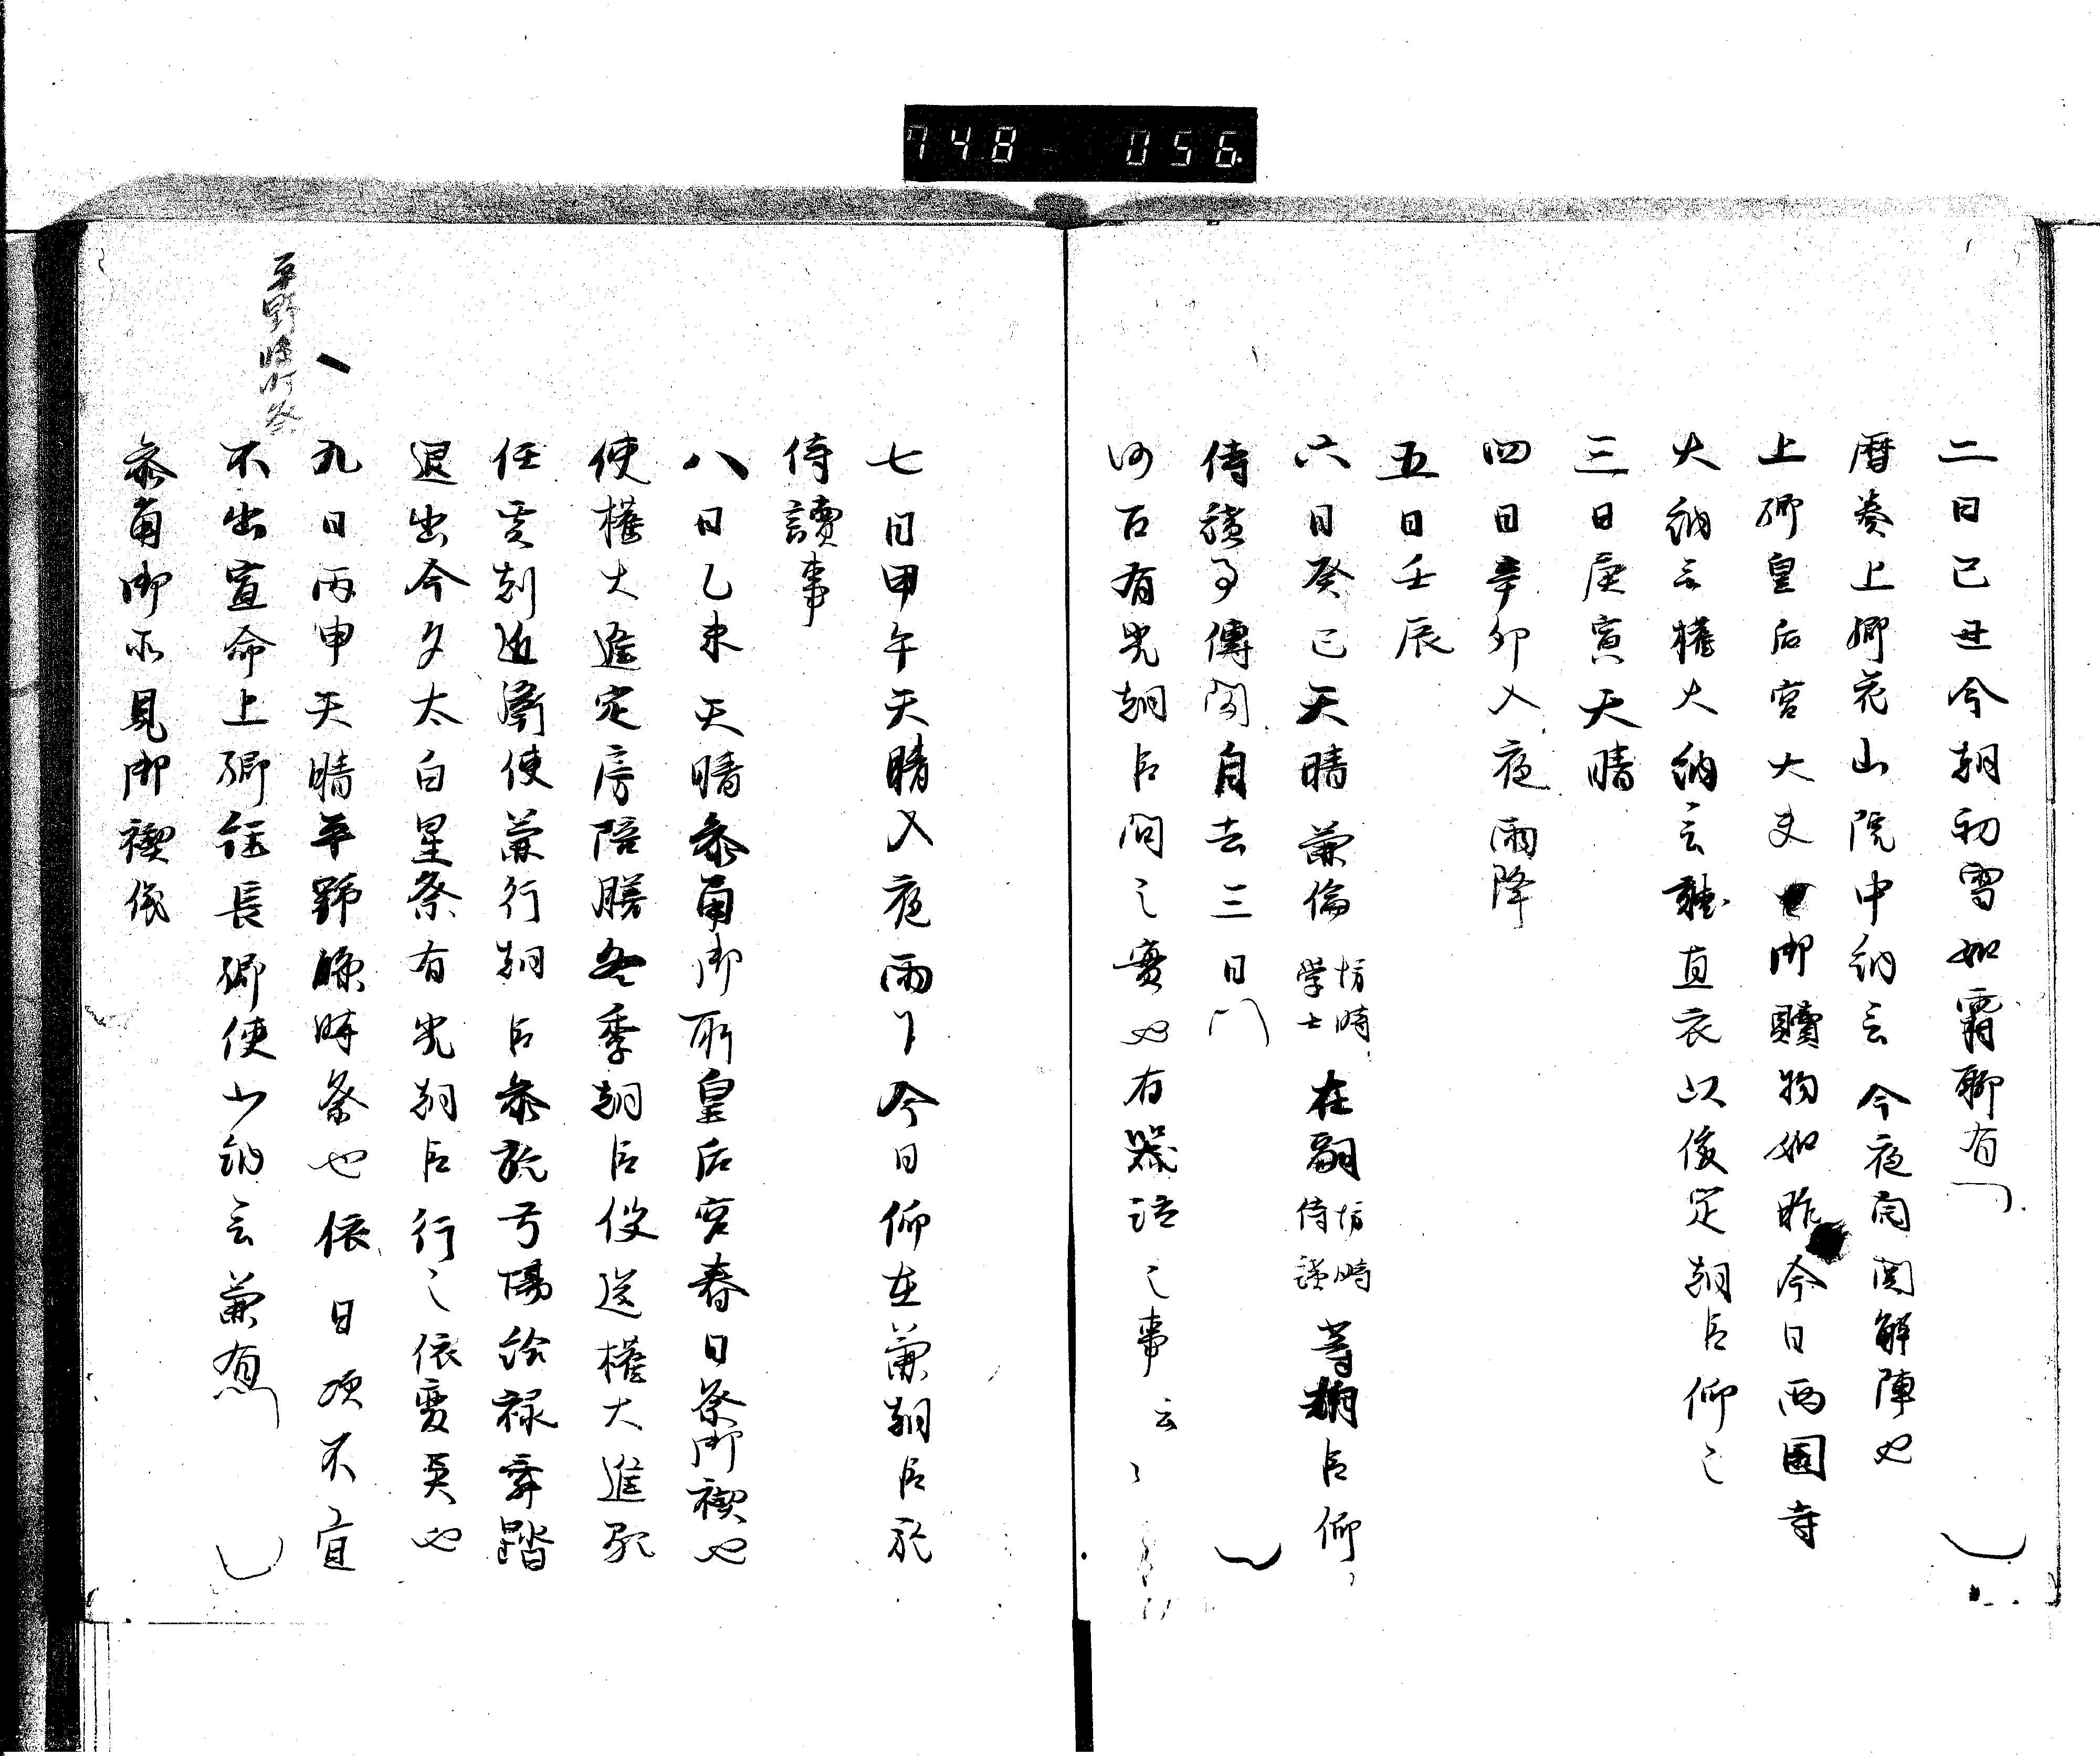 748 056
二日己丑今朝初雪如霜聊有
暦奏上卿花山院中納言今夜開関解陣也
上卿皇后宮大夫御贖物如昨今日両国寺
大納言権大納言聴直衣以俊定朝臣仰之
三日庚寅天晴
四日辛卯入夜雨降
五日壬辰
六日癸巳天晴兼倫坊時学士在嗣坊時侍読等朝臣仰
侍読事傳聞自去三日
河石有光朝臣問之実也有器語之事云々
七日甲午天晴入夜雨下今日仰在兼朝臣於
侍讀事
八日乙未天晴参角御所皇后宮春日祭御禊也
使権大進定房陪膳冬季朝臣役送権大進
任近衛使兼行朝臣参弓場給禄舞踏
退出今夕太白星祭有光朝臣行之依変異也
平野臨時祭
九日丙申天晴平野臨時祭也依日次不宜
不出宣命上卿経長卿使少納言兼有
参角御所見御禊儀